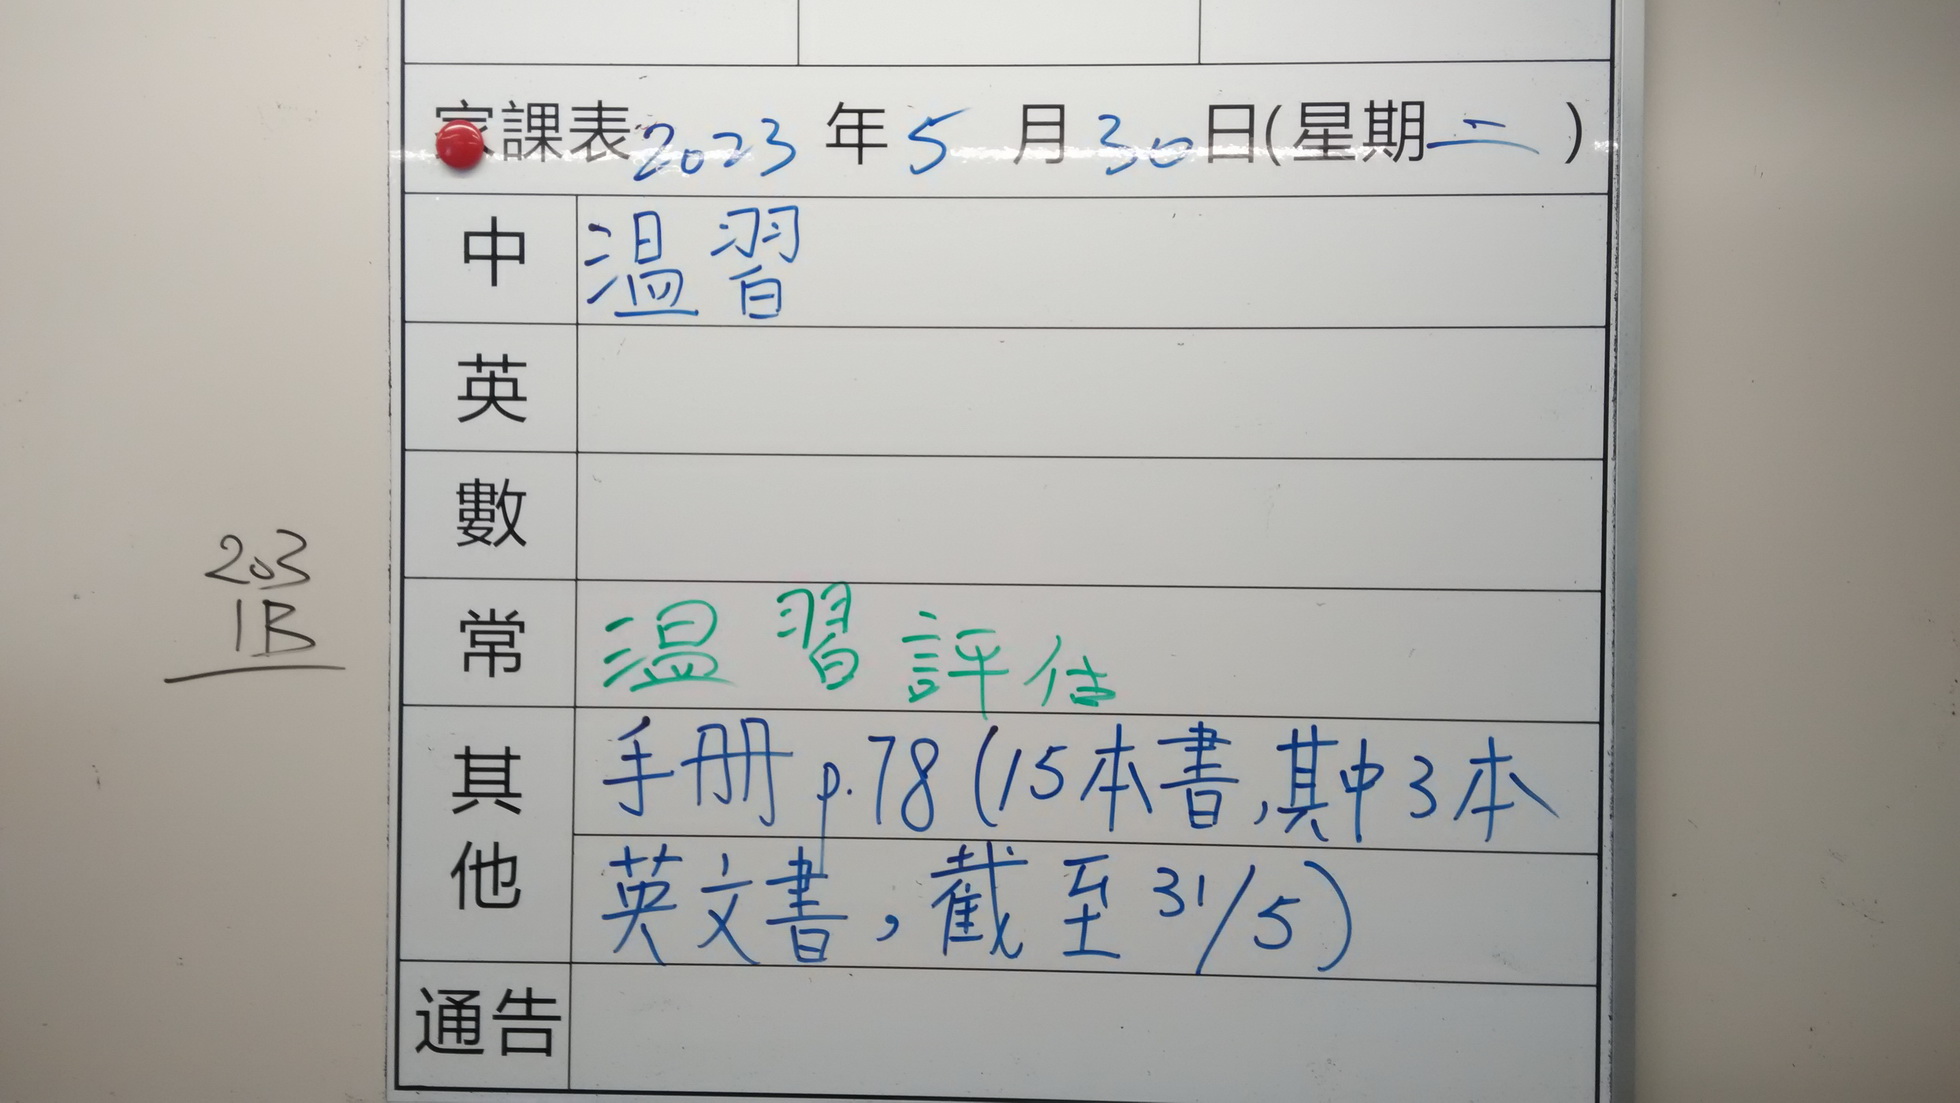 家課表 2023 年 5 月 30 日(星期二)
中 温習
英
數
203
1B
常 温習評估
其他 手冊 p.78 (15本書,其中3本
英文書,截至 31/5)
通告